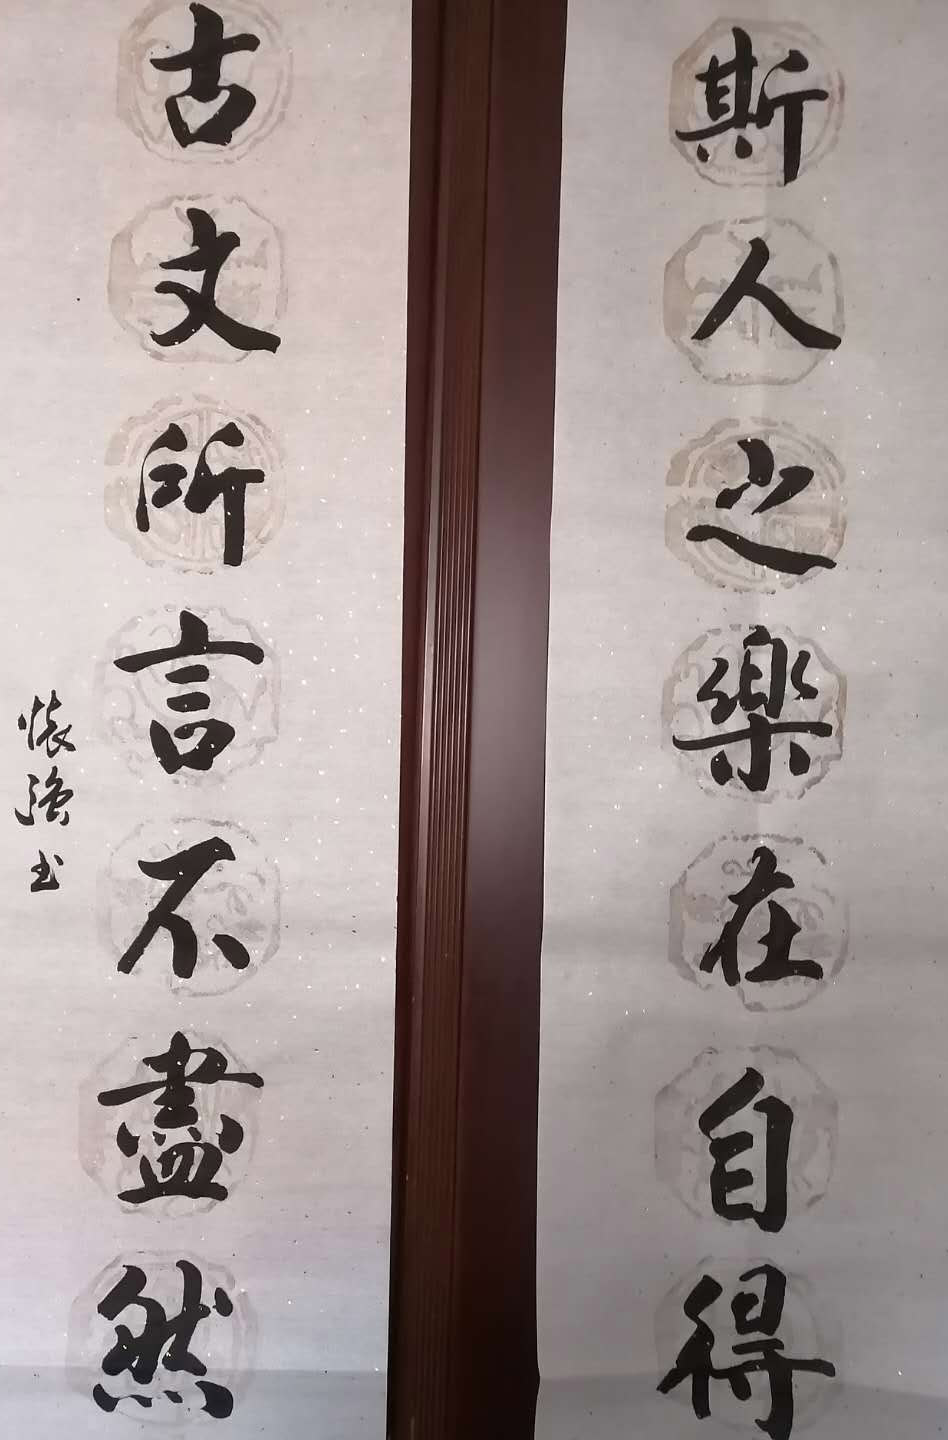 斯人之樂在自得
古文所言不盡然
懷强书